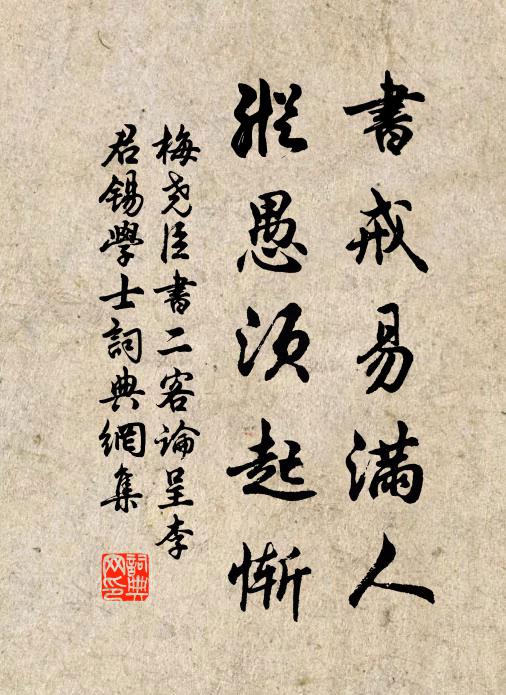 書戒易滿人
縱愚須起慚
梅堯臣書二客論呈李
君錫學士詞典網集
詞典
网印